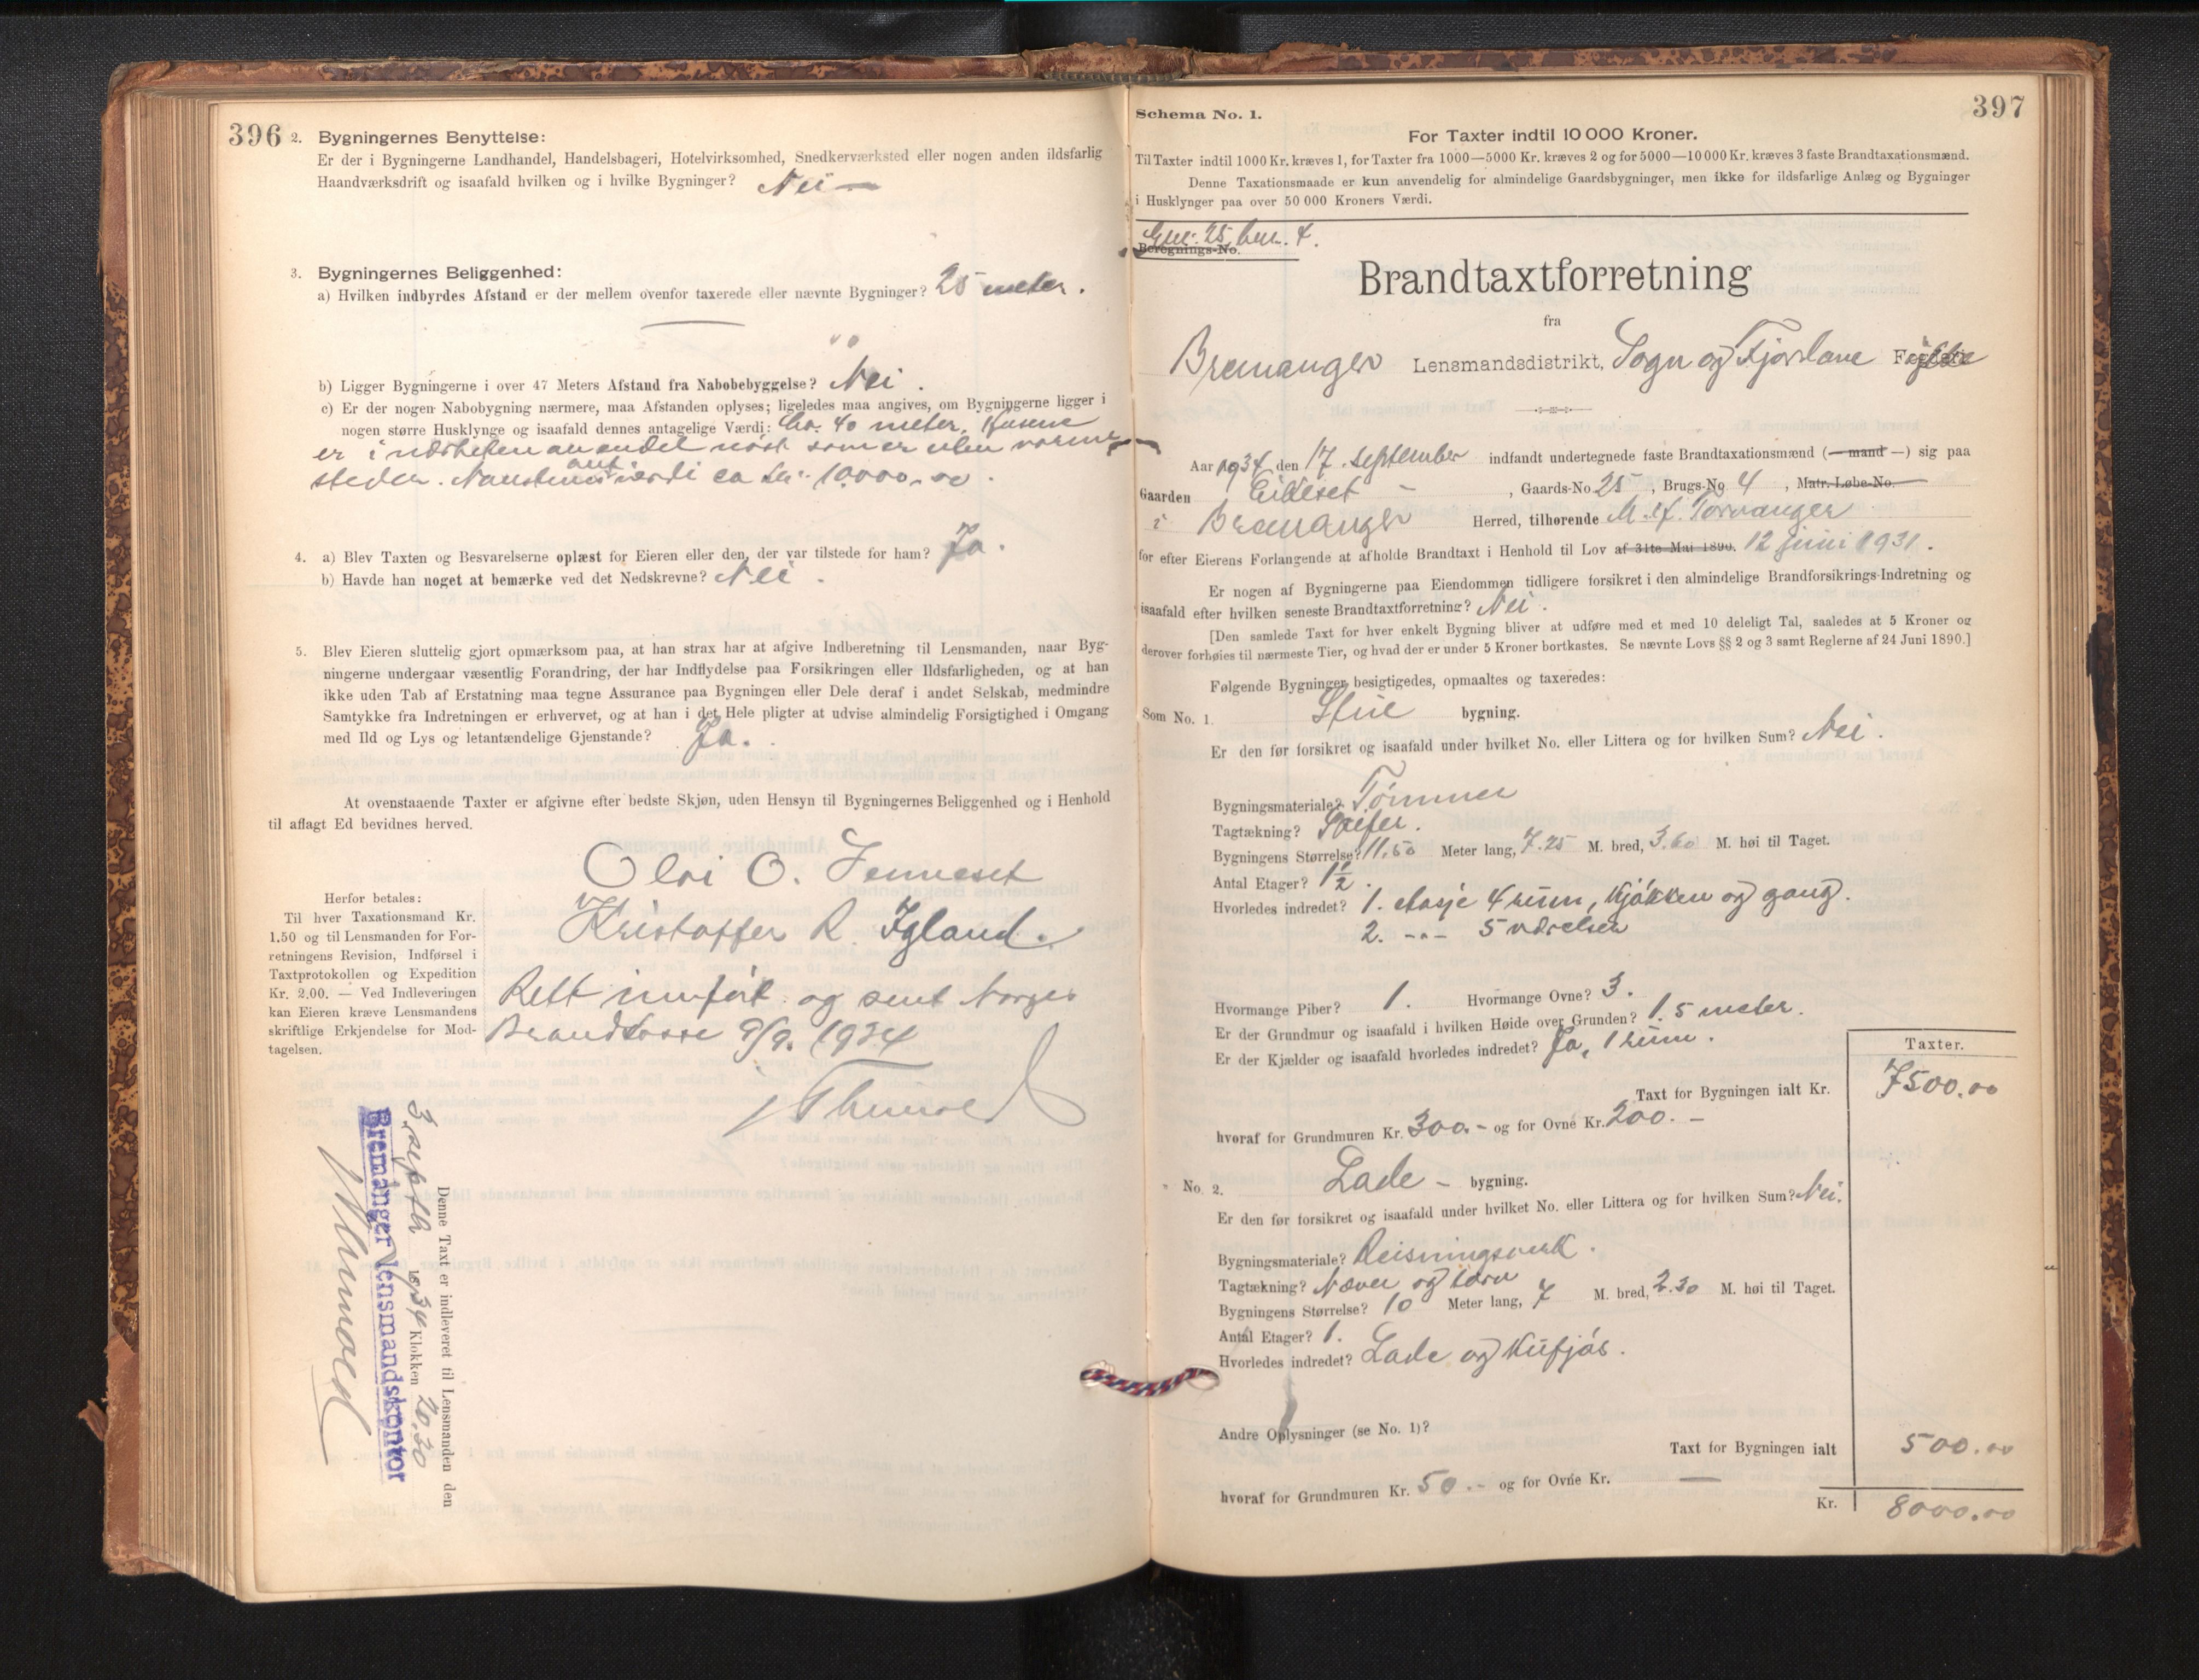 396
2. Bygningernes Benyttelse:
Er der i Bygningerne Landhandel, Handelsbageri, Hotelvirksomhed, Snedkerværksted eller nogen anden ildsfarlig
Haandværksdrift og isaafald hvilken og i hvilke Bygninger? Nei —
3. Bygningernes Beliggenhed:
a) Hvilken indbyrdes Afstand er der mellem ovenfor taxerede eller nævnte Bygninger? 25 meter.
b) Ligger Bygningerne i over 47 Meters Afstand fra Nabobebyggelse? Nei.
c) Er der nogen Nabobygning nærmere, maa Afstanden oplyses; ligeledes maa angives, om Bygningerne ligger i
nogen større Husklynge og isaafald dennes antagelige Værdi: Ca. 40 meter. Husene
er i nærheten av endel nöst som er uten varme
steder. Naustenes ant. verdi ca kr. 10000.00.
4. a) Blev Taxten og Besvarelserne oplæst for Eieren eller den, der var tilstede for ham? Ja.
b) Havde han noget at bemærke ved det Nedskrevne? Nei.
5. Blev Eieren sluttelig gjort opmærksom paa, at han strax har at afgive Indberetning til Lensmanden, naar Byg-
ningerne undergaar væsentlig Forandring, der har Indflydelse paa Forsikringen eller Ildsfarligheden, og at han
ikke uden Tab af Erstatning maa tegne Assurance paa Bygningen eller Dele deraf i andet Selskab, medmindre
Samtykke fra Indretningen er erhvervet, og at han i det Hele pligter at udvise almindelig Forsigtighed i Omgang
med Ild og Lys og letantændelige Gjenstande? Ja.
At ovenstaaende Taxter er afgivne efter bedste Skjøn, uden Hensyn til Bygningernes Beliggenhed og i Henhold
til aflagt Ed bevidnes herved.
Olai O. Senneset
Kristoffer R. Igland.
Herfor betales:
Til hver Taxationsmand Kr.
1.50 og til Lensmanden for For-
retningens Revision, Indførsel i
Taxtprotokollen og Expedition
Kr. 2.00. — Ved Indleveringen
kan Eieren kræve Lensmandens
skriftlige Erkjendelse for Mod-
tagelsen.
Rett innfört og sent Norges
Brandkasse 9/9. 1934
Denne Taxt er indleveret til Lensmanden den
3. septbr 1934 Klokken 20.30
Bremanger lensmandskontor
397
Schema No. 1.
For Taxter indtil 10 000 Kroner.
Til Taxter indtil 1000 Kr. kræves 1, for Taxter fra 1000—5000 Kr. kræves 2 og for 5000—10 000 Kr. kræves 3 faste Brandtaxationsmænd.
Denne Taxationsmaade er kun anvendelig for almindelige Gaardsbygninger, men ikke for ildsfarlige Anlæg og Bygninger
i Husklynger paa over 50 000 Kroners Værdi.
Gnr. 25 bnr. 4.
Beregnings-No.
Brandtaxtforretning
fra
Bremanger Lensmandsdistrikt, Sogn og Fjordane Fogderi fylke
Aar 1934 den 17. september indfandt undertegnede faste Brandtaxationsmænd (— mand —) sig paa
Gaarden Gilleset - , Gaards-No. 25 , Brugs-No. 4 , Matr. Løbe-No.
i Bremanger Herred, tilhørende M. A. Torvanger
for efter Eierens Forlangende at afholde Brandtaxt i Henhold til Lov af 31te Mai 1890. 12 juni 1931.
Er nogen af Bygningerne paa Eiendommen tidligere forsikret i den almindelige Brandforsikrings-Indretning og
isaafald efter hvilken seneste Brandtaxtforretning? Nei.
[Den samlede Taxt for hver enkelt Bygning bliver at udføre med et med 10 deleligt Tal, saaledes at 5 Kroner og
derover forhøies til nærmeste Tier, og hvad der er under 5 Kroner bortkastes. Se nævnte Lovs §§ 2 og 3 samt Reglerne af 24 Juni 1890.]
Følgende Bygninger besigtigedes, opmaaltes og taxeredes:
Som No. 1. Stue bygning.
Er den før forsikret og isaafald under hvilket No. eller Littera og for hvilken Sum? Nei.
Bygningsmateriale? Tömmer
Tagtækning? Skifer.
Bygningens Størrelse? 11.50 Meter lang, 7.25 M. bred, 3.60 M. høi til Taget.
Antal Etager? 1½.
Hvorledes indredet? 1. etasje 4 rum, kjökken og gang.
2. -"- 5 værelser
Hvormange Piber? 1. Hvormange Ovne? 3.
Er der Grundmur og isaafald i hvilken Høide over Grunden? 1.5 meter.
Er der Kjælder og isaafald hvorledes indredet? Ja, 1 rum.
Taxter.
Taxt for Bygningen ialt Kr. 7500.00
hvoraf for Grundmuren Kr. 300.- og for Ovne Kr. 200.-
" No. 2. Lade - bygning.
Er den før forsikret og isaafald under hvilket No. eller Littera og for hvilken Sum? Nei.
Bygningsmateriale? Reisningsverk.
Tagtækning? Næver og torv
Bygningens Størrelse? 10 Meter lang, 7 M. bred, 2.30 M. høi til Taget.
Antal Etager? 1.
Hvorledes indredet? Lade og kufjós.
Andre Oplysninger (se No. 1)?
Taxt for Bygningen ialt 500.00
hvoraf for Grundmuren Kr. 50.- og for Ovne Kr. —
Kr. 8000.00